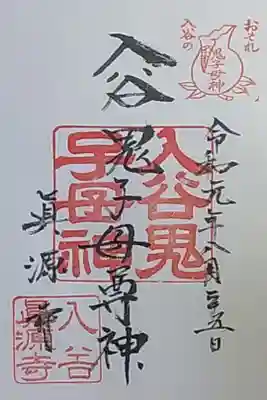 おそれ
入谷の
鬼子母神
令和元年八月二十五日
入谷
鬼子母尊神
入谷鬼
子母神
眞源寺
入谷
眞源寺